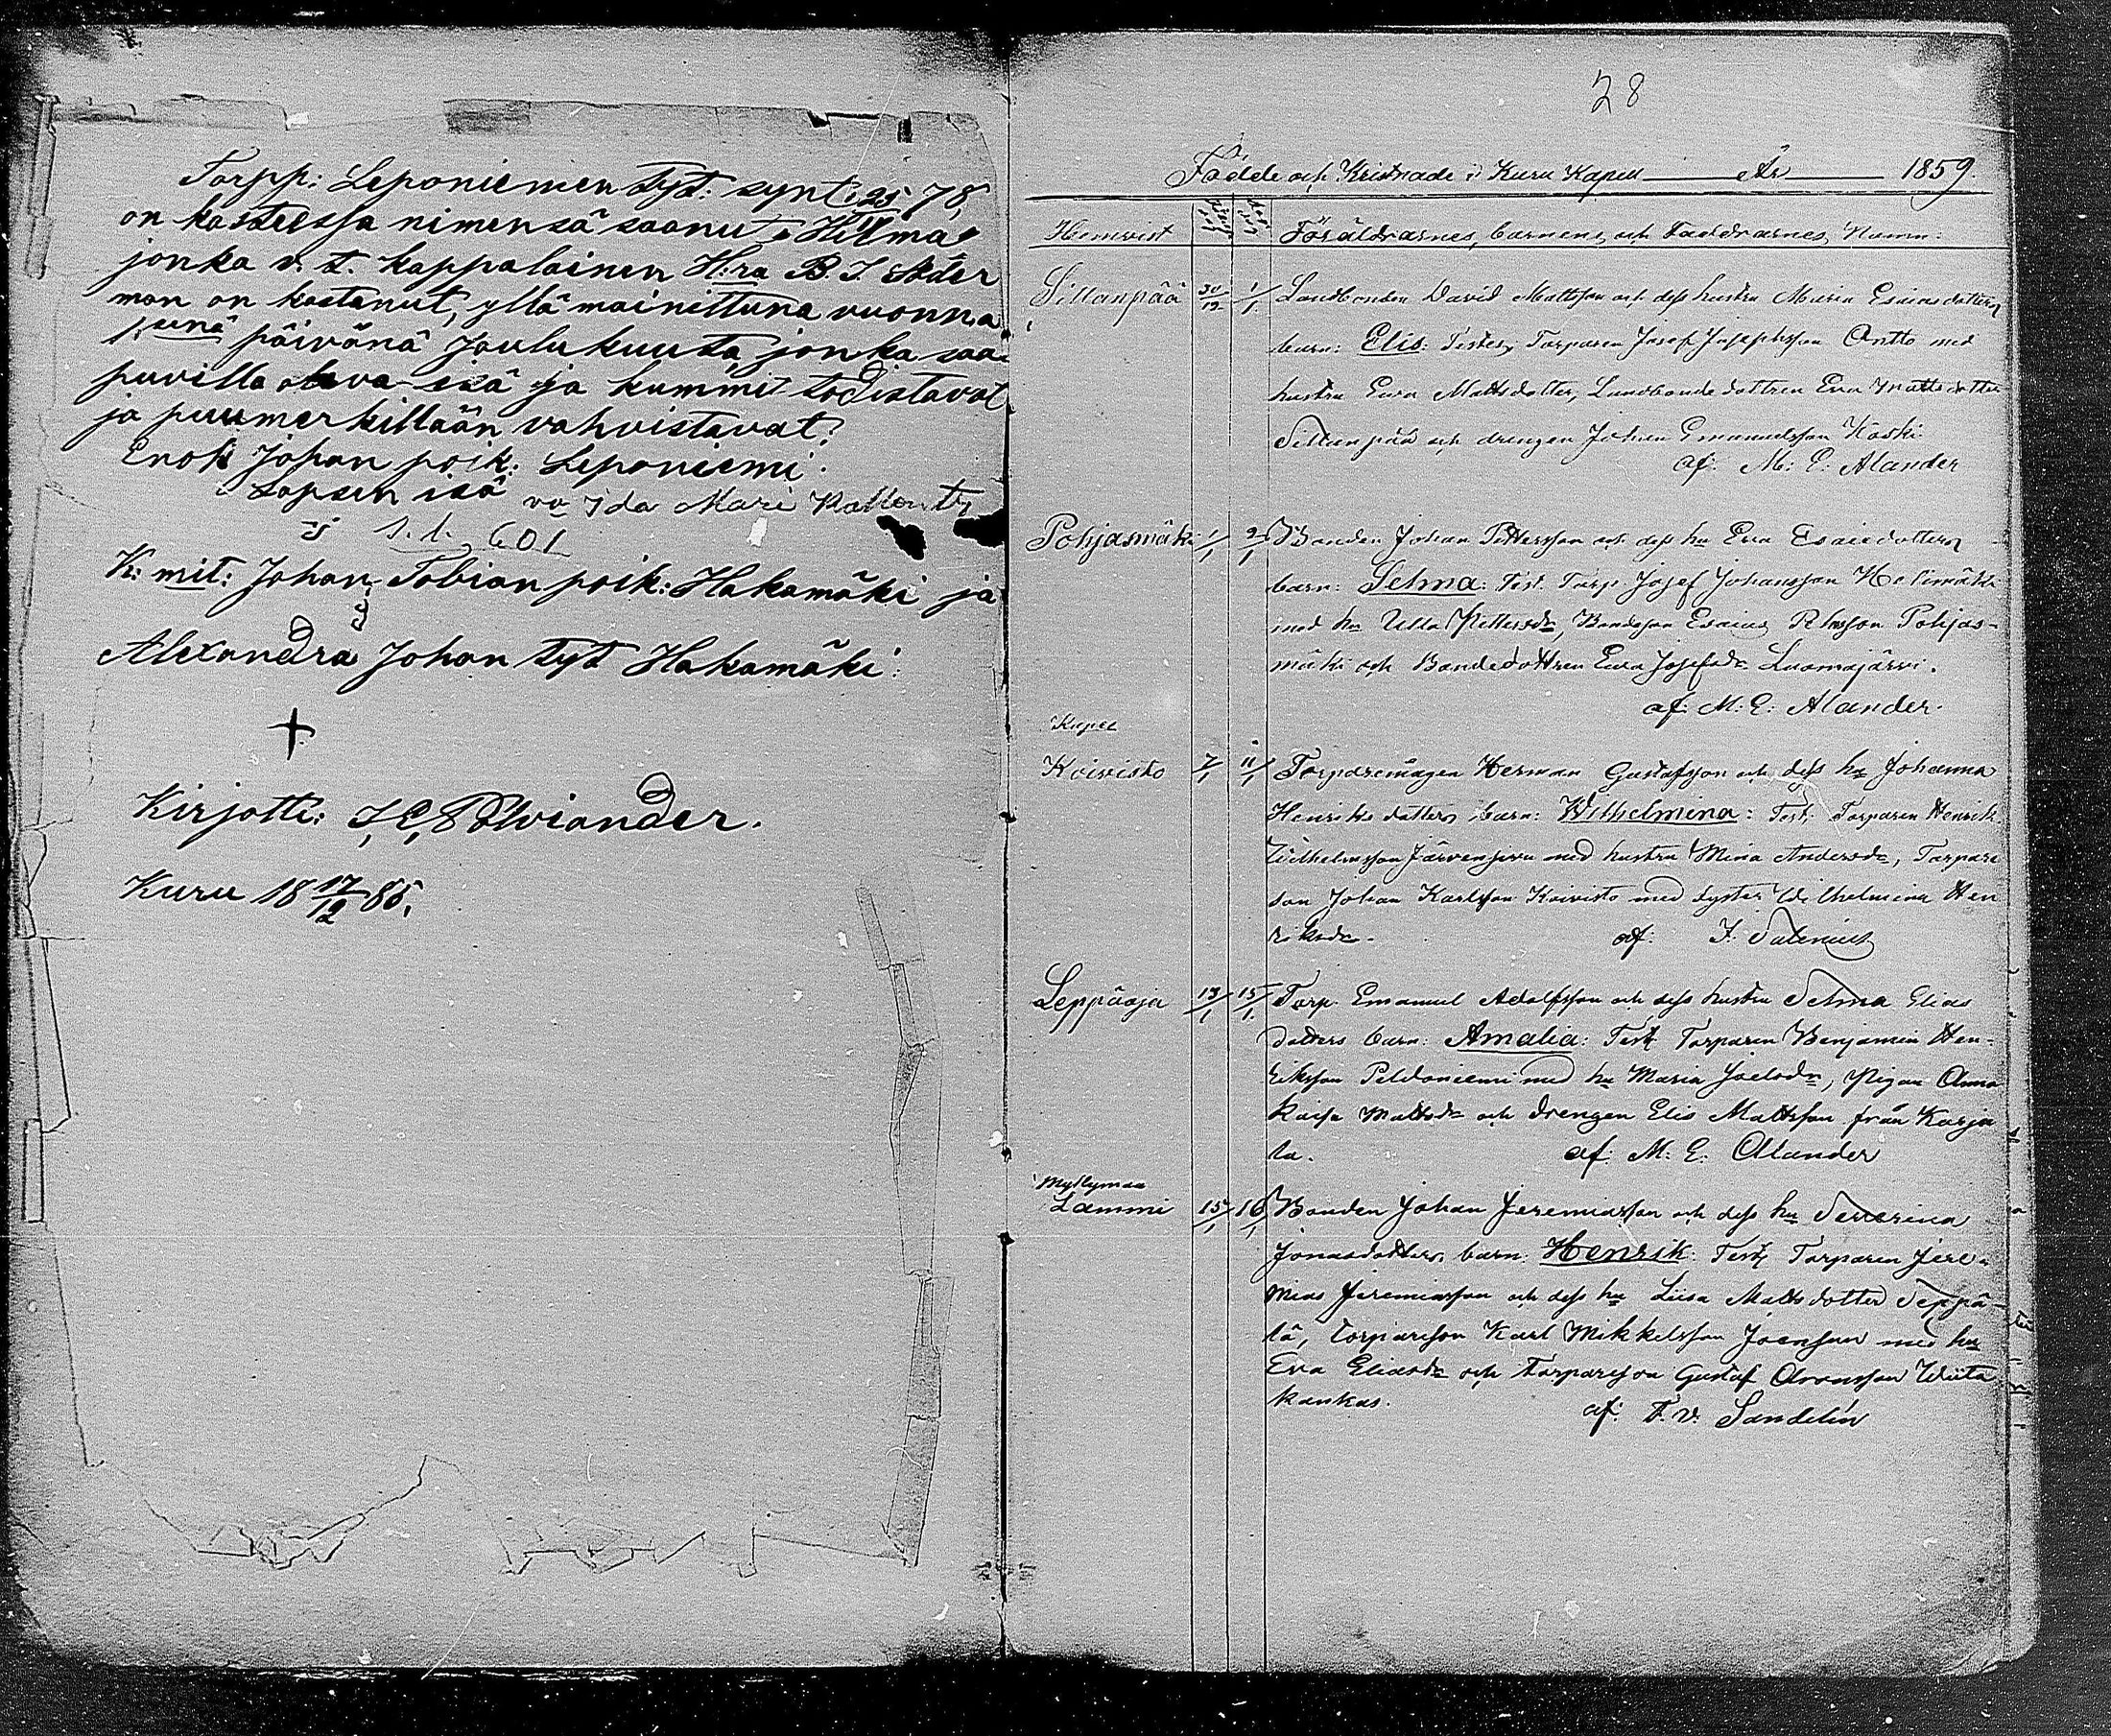 Torpp: Leponiemen tyt: synt: 25/11 78,
on kasteessa nimensä saanut "Hilma"
jonka v. t. kappalainen H:ra B. J. Söder
man on kastanut, yllä mainittuna vuonna
1:senä päivänä Joulukuuta, jonka saa-
puvilla oleva isä ja kummit todistavat
ja puumerkillään vahvistavat:
Enok Johan poik: Leponiemi
Lapsen isä vo Ida Mari Kallent:
s. 1. 601
K: mit: Johan Tobian poik: Hakamäki ja
Alexandra Johan tyt Hakamäki:
+
Kirjotti: J. E. Polviander.
Kuru 18 17/12 85.
28
Födde och Kristnade i Kuru Kapell År 1859.
Hemvist Föräldrarnes, barnens, och Faddrarnes, Namn:
Sillanpää 30/12 1/1 Landbonden David Mattsson och dess hustru Maria Esaiasdotters
barn: Elis: Testes, Torparen Josef Josephsson Antto med
hustru Eva Mattsdotter, Landbonde dottren Eva Mattsdotter
Sillanpää och drengen Johan Emanuelsson Koski
af. M: E: Alander
Pohjasmäki 1/1 2/1 Bonden Johan Pettersson och dess hu Eva Esaiedotters
barn: Selma: Test. Torp Josef Johansson Kalimäki
med hu Ulla Pettersdr, Bondeson Esaias Pohjas-
mäki och Bondedottren Eva Josefsdr Luomajärvi.
af: M: E: Alander.
Kapee
Koivisto 7/1 11/1 Torparemågen Herman Gustafsson och dess hu Johanna
Henriksdotters barn: Wilhelmina: Test; Torparen Henrik
Wilhelmsson Järvensivu med hustru Mina Andersdr, Torpare
son Johan Karlsson Koivisto med syster Wilhelmina Hen
riksdr. af: J. Salenius
Leppäoja 13/1 15/1 Torp. Emanuel Adolfsson och dess hustru Selma Elias
dotters barn: Amalia: Test Torparen Benjamin Hen-
riksson Peldoniemi med hu Maria Joelsdr, Pigan Anna
Kaisa Mattsdr och drengen Elis Mattsson från Karja
la. af: M: E. Alander
Myllymaa
Lammi 15/1 16/1 Bonden Johan Jeremiasson och dess hu Severina
Jonasdotters barn: Henrik: Test Torparen Jere-
mias Jeremiasson och dess hu Liisa Mattsdotter Seppä-
lä, Torpareson Karl Mikkelsson Joensuu med hu
Eva Eliasdr och torpareson Gustaf Aronsson Wiita
kankas. af: F. V. Sandelin